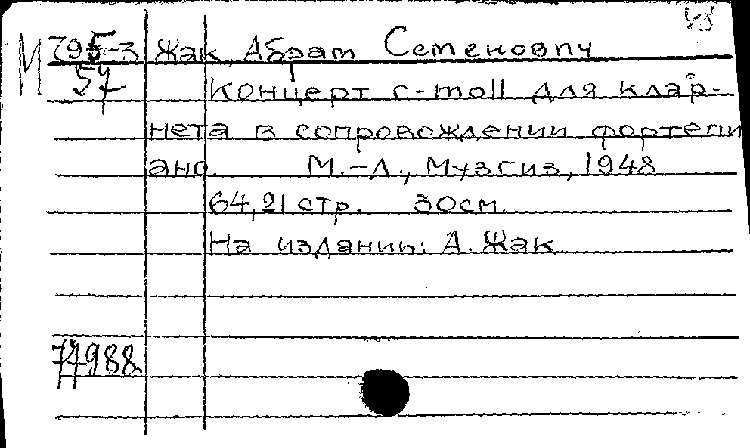 М 795-3 Жак, Абрам Семенович
57 Концерт c-moll для клар-
нета в сопровождении фортепи
ано. М.-Л., Музгиз, 1948
64, 21 стр. 30см
На издании: А. Жак
74988